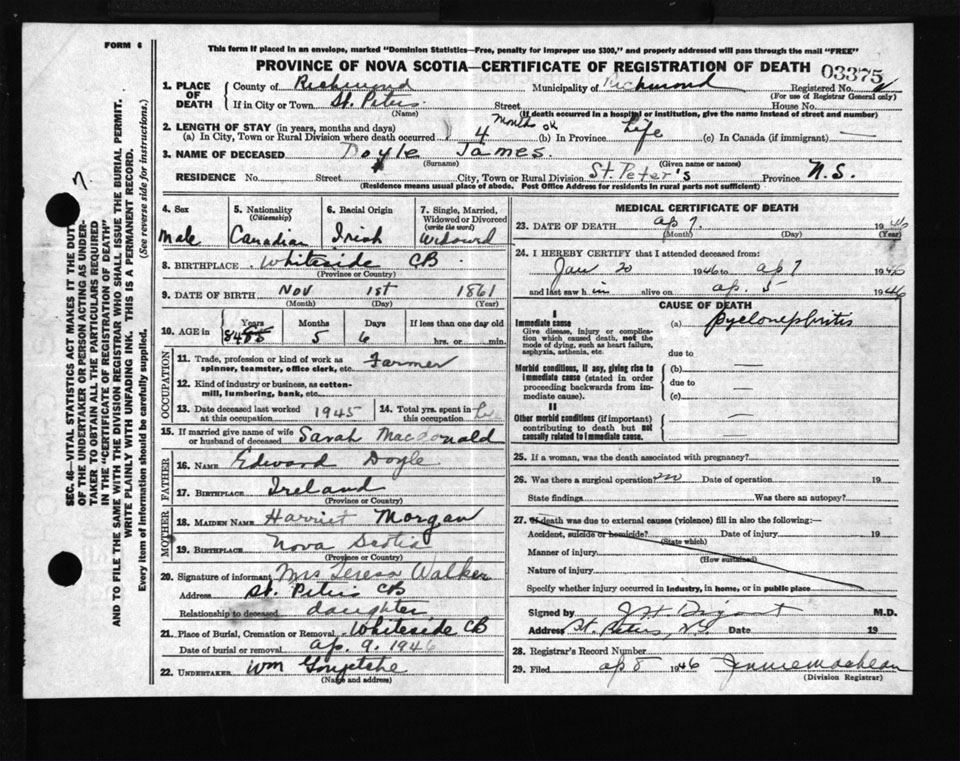 FORM 6
This form if placed in an envelope, marked "Dominion Statistics—Free, penalty for improper use $300," and properly addressed will pass through the mail "FREE"
PROVINCE OF NOVA SCOTIA—CERTIFICATE OF REGISTRATION OF DEATH 03375
1. PLACE OF DEATH
County of Richmond Municipality of Richmond Registered No.
(For use of Registrar General only)
If in City or Town St. Peters Street House No.
(Name) (If death occurred in a hospital or institution, give the name instead of street and number)
2. LENGTH OF STAY (in years, months and days)
(a) In City, Town or Rural Division where death occurred 4 Months (b) In Province Life (c) In Canada (if immigrant) —
3. NAME OF DECEASED Doyle James.
(Surname) (Given name or names)
RESIDENCE No. Street City, Town or Rural Division St. Peter's Province N.S.
(Residence means usual place of abode. Post Office Address for residents in rural parts not sufficient)
4. Sex Male
5. Nationality (Citizenship) Canadian
6. Racial Origin Irish
7. Single, Married, Widowed or Divorced (write the word) Widowed
8. BIRTHPLACE Whiteside CB
(Province or Country)
9. DATE OF BIRTH Nov 1st 1861
(Month) (Day) (Year)
10. AGE in Years Months Days If less than one day old
84 5 6 hrs. or min.
OCCUPATION
11. Trade, profession or kind of work as spinner, teamster, office clerk, etc. Farmer
12. Kind of industry or business, as cotton-mill, lumbering, bank, etc.
13. Date deceased last worked at this occupation 1945
14. Total yrs. spent in this occupation
15. If married give name of wife or husband of deceased Sarah Macdonald
FATHER
16. NAME Edward Doyle
17. BIRTHPLACE Ireland
(Province or Country)
MOTHER
18. MAIDEN NAME Harriet Morgan
19. BIRTHPLACE Nova Scotia
(Province or Country)
20. Signature of informant Mrs Teresa Walker
Address St. Peters CB
Relationship to deceased daughter
21. Place of Burial, Cremation or Removal Whiteside CB
Date of burial or removal ap. 9. 1946
22. UNDERTAKER Wm
(Name and address)
MEDICAL CERTIFICATE OF DEATH
23. DATE OF DEATH ap 7. 1946
(Month) (Day) (Year)
24. I HEREBY CERTIFY that I attended deceased from:
Jan 20 1946 to ap 7 1946
and last saw him alive on ap. 5 1946
CAUSE OF DEATH
I
Immediate cause (a) pyelonephritis
Give disease, injury or complication which caused death, not the mode of dying, such as heart failure, asphyxia, asthenia, etc.
due to
Morbid conditions, if any, giving rise to immediate cause (stated in order proceeding backwards from immediate cause).
(b) —
due to
(c) —
II
Other morbid conditions (if important) contributing to death but not causally related to immediate cause.
25. If a woman, was the death associated with pregnancy?
26. Was there a surgical operation? no Date of operation 19
State findings Was there an autopsy?
27. If death was due to external causes (violence) fill in also the following:—
Accident, suicide or homicide? Date of injury 19
(State which)
Manner of injury
(How sustained)
Nature of injury
Specify whether injury occurred in industry, in home, or in public place
Signed by M.D.
Address St. Peters, N.S. Date 19
28. Registrar's Record Number
29. Filed ap 8 1946 Jennie MacLean
(Division Registrar)
SEC. 46—VITAL STATISTICS ACT MAKES IT THE DUTY
OF THE UNDERTAKER OR PERSON ACTING AS UNDER-
TAKER TO OBTAIN ALL THE PARTICULARS REQUIRED
IN THE "CERTIFICATE OF REGISTRATION OF DEATH"
AND TO FILE THE SAME WITH THE DIVISION REGISTRAR WHO SHALL ISSUE THE BURIAL PERMIT.
WRITE PLAINLY WITH UNFADING INK. THIS IS A PERMANENT RECORD.
Every item of information should be carefully supplied. (See reverse side for instructions.)